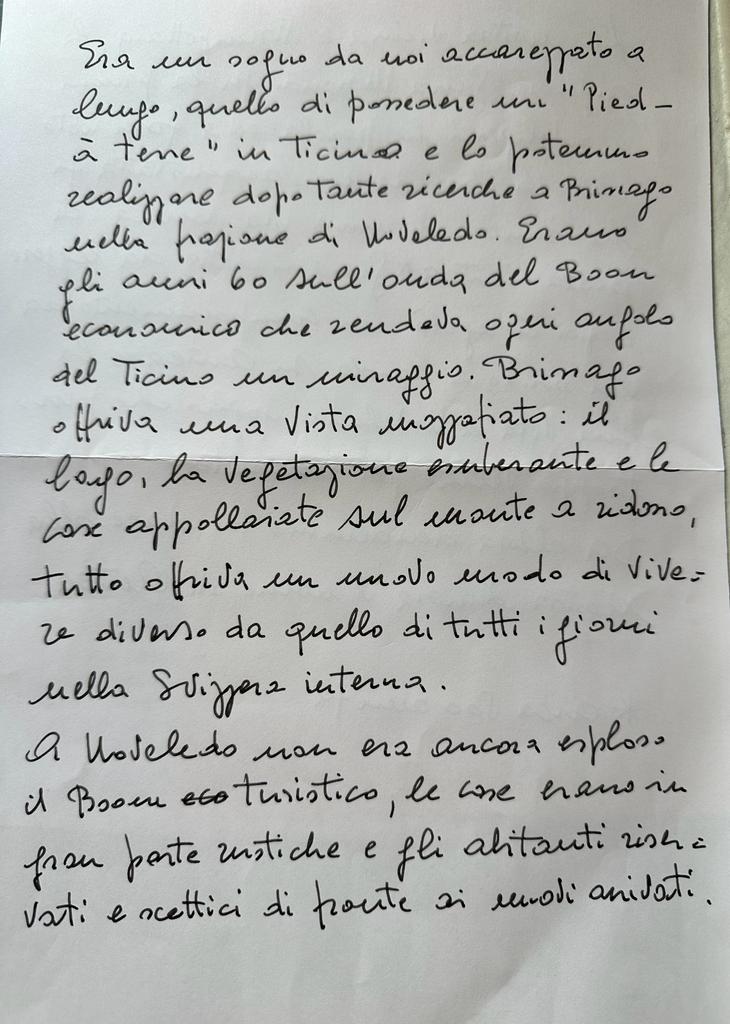 Era un sogno da noi accarezzato a
lungo, quello di possedere un "Pied-
à terre" in Ticino e lo potemmo
realizzare dopo tante ricerche a Brissago
nella frazione di Noveledo. Erano
gli anni 60 sull'onda del Boom
economico che rendeva ogni angolo
del Ticino un miraggio. Brissago
offriva una vista mozzafiato: il
lago, la vegetazione esuberante e le
case appollaiate sul monte a ridosso,
tutto offriva un nuovo modo di vive=
re diverso da quello di tutti i giorni
nella Svizzera interna.
A Noveledo non era ancora esploso
il Boom turistico, le case erano in
gran parte rustiche e gli abitanti riser=
vati e scettici di fronte ai nuovi arrivati.